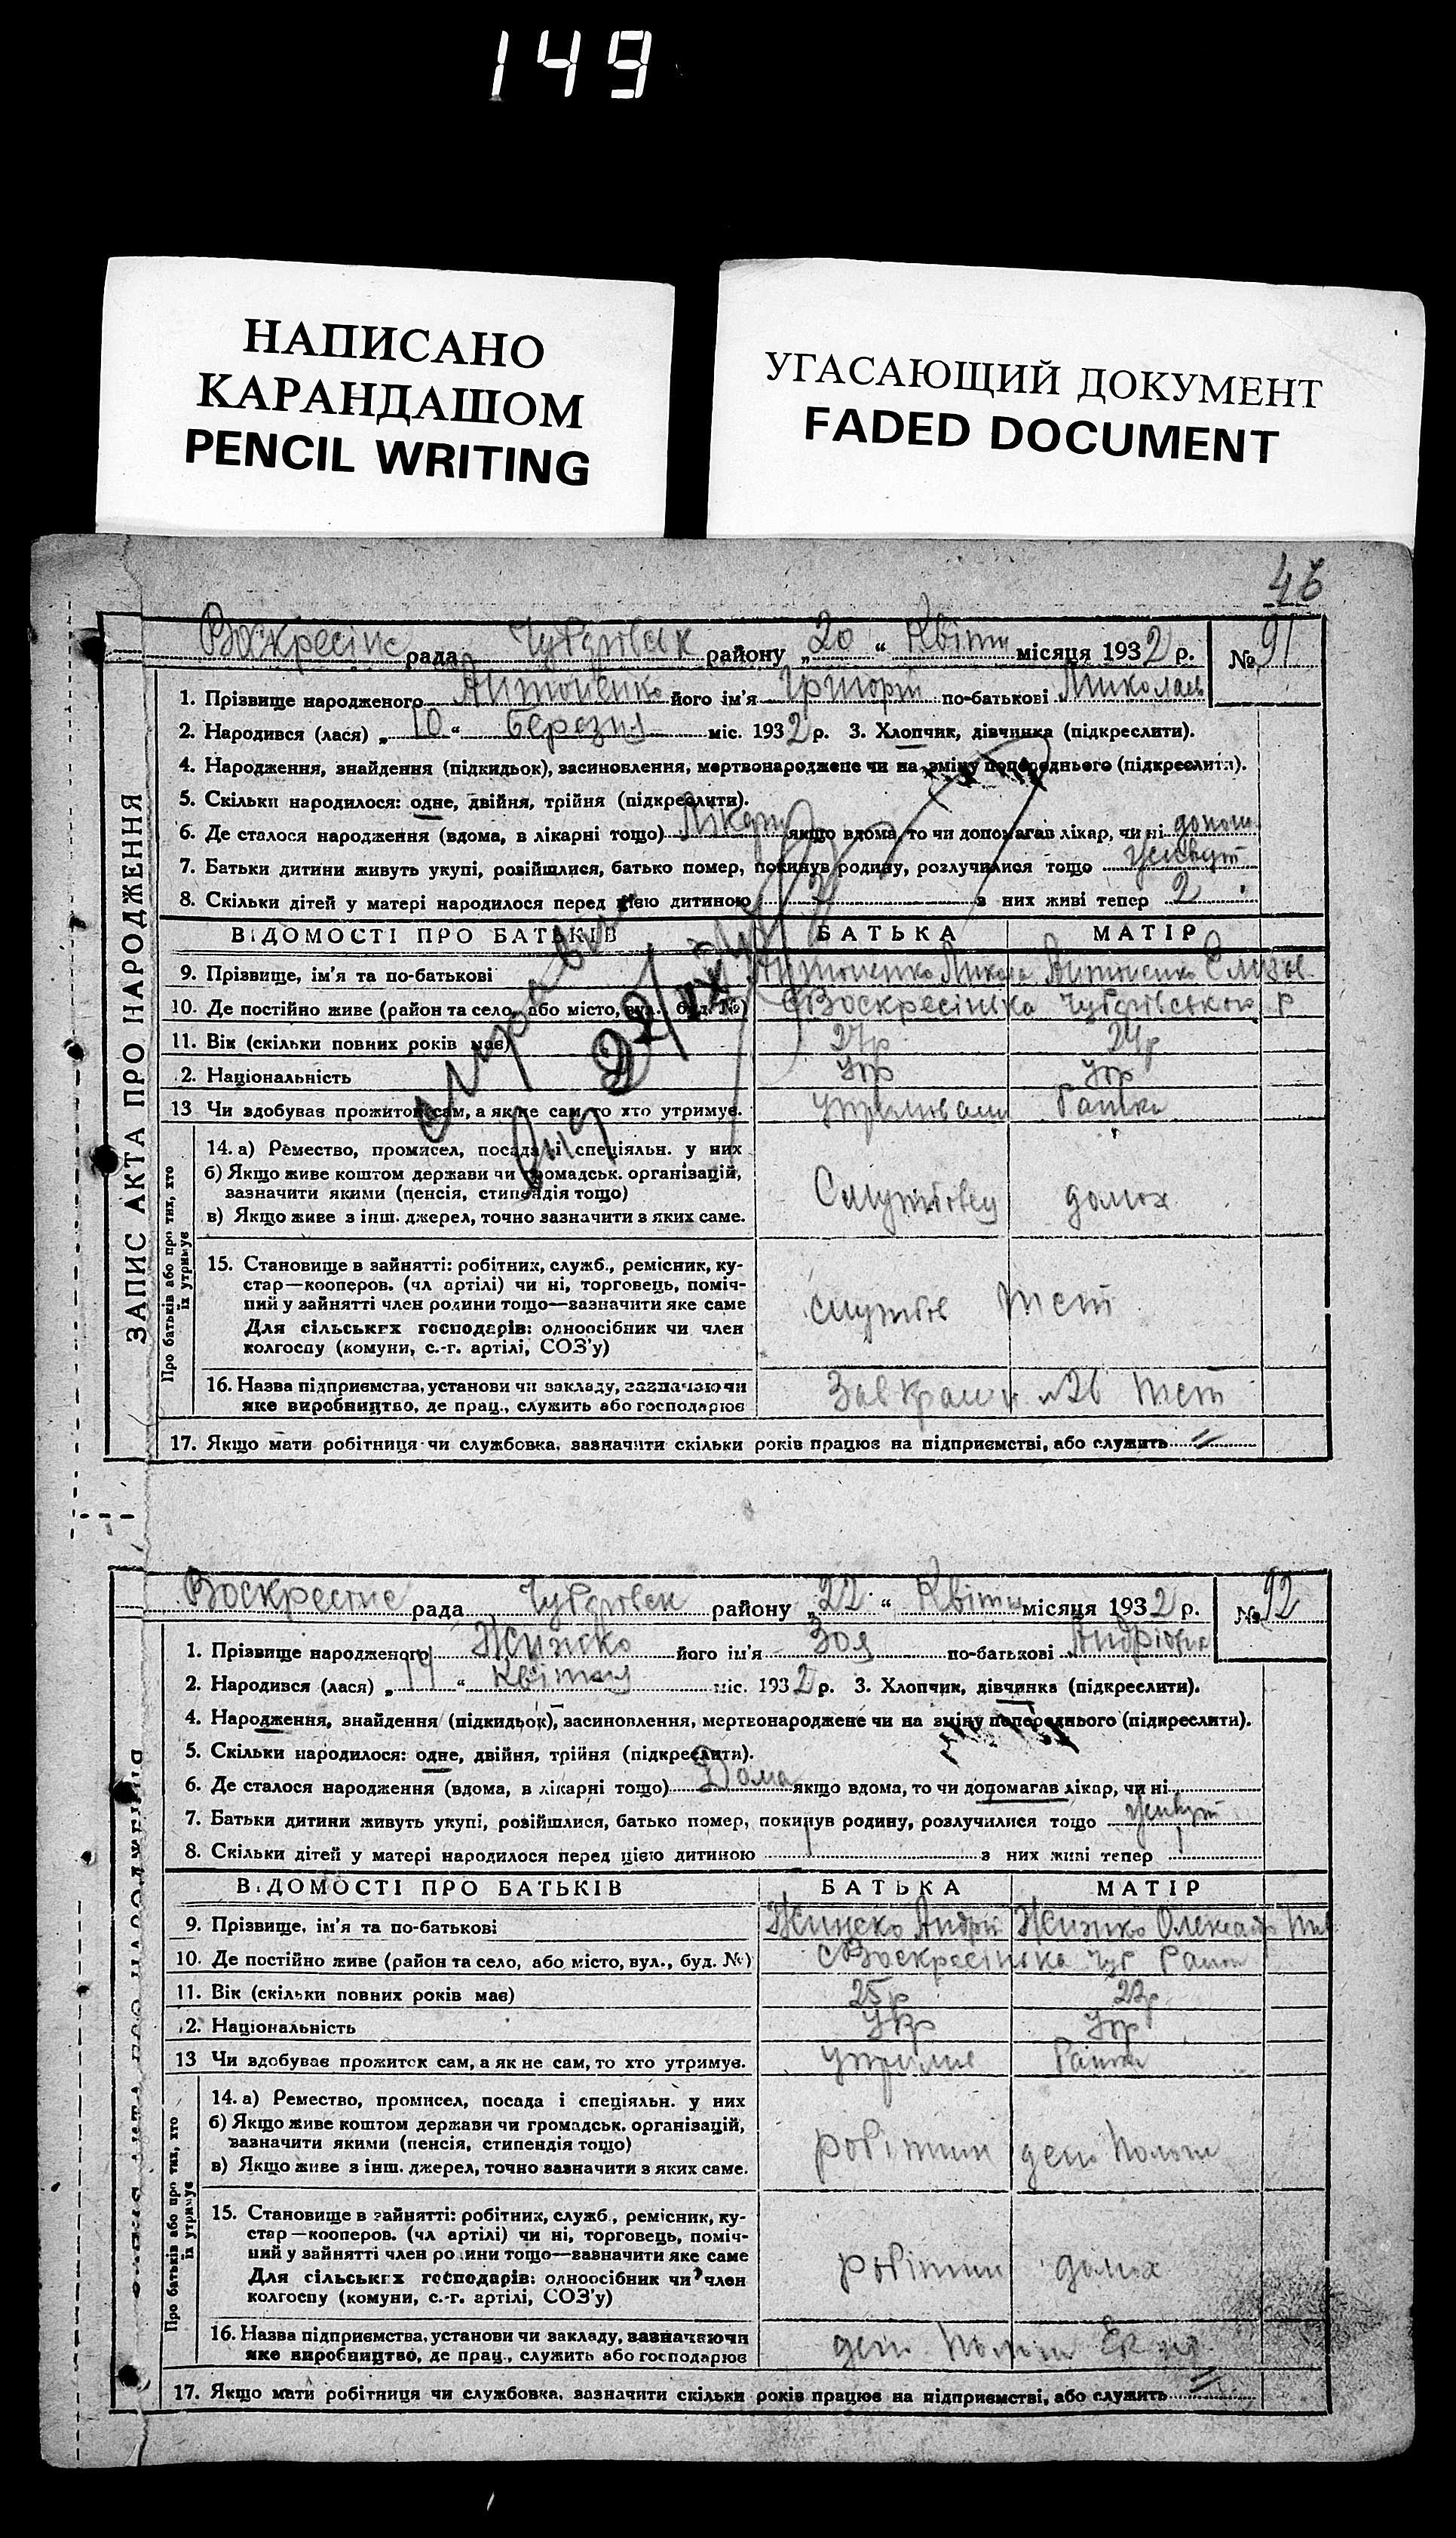 149
НАПИСАНО
КАРАНДАШОМ
PENCIL WRITING
УГАСАЮЩИЙ ДОКУМЕНТ
FADED DOCUMENT
46
ЗАПИС АКТА ПРО НАРОДЖЕННЯ
Воскресінс рада Чубарівськ району „20“ Квітн місяця 1932 р. № 91
1. Прізвище народженого Антоненко його ім'я Григорій по-батькові Миколаєв
2. Народився (лася) „10“ Березня міс. 1932 р. 3. Хлопчик, дівчинка (підкреслити).
4. Народження, знайдення (підкидьок), засиновлення, мертвонароджене чи на зміну попереднього (підкреслити).
5. Скільки народилося: одне, двійня, трійня (підкреслити).
6. Де сталося народження (вдома, в лікарні тощо) Лікарн якщо вдома, то чи допомагав лікар, чи ні допом
7. Батьки дитини живуть укупі, розійшлися, батько помер, покинув родину, розлучилися тощо живут
8. Скільки дітей у матері народилося перед цією дитиною 2 з них живі тепер 2
ВІДОМОСТІ ПРО БАТЬКІВ БАТЬКА МАТІР
9. Прізвище, ім'я та по-батькові Антоненко Микола Антоненко Єлизав
10. Де постійно живе (район та село, або місто, вул., буд. №) с Воскресінка Чубарівського р
11. Вік (скільки повних років має) 27р 24р
2. Національність Укр Укр
13 Чи здобував прожиток сам, а як не сам, то хто утримує.
Про батьків або про тих, хто їх утримує
14. а) Ремество, промисел, посада і спеціяльн. у них
б) Якщо живе коштом держави чи громадськ. організацій,
зазначити якими (пенсія, стипендія тощо)
в) Якщо живе з інш. джерел, точно зазначити з яких саме.
Службовец домох
15. Становище в зайнятті: робітник, служб., ремісник, ку-
стар—кооперов. (чл артілі) чи ні, торговець, поміч-
ний у зайнятті член родини тощо—зазначити яке саме
Для сільських господарів: одноосібник чи член
колгоспу (комуни, с.-г. артілі, СОЗ'у)
службов
16. Назва підприємства, установи чи закладу, зазначаючи
яке виробництво, де прац., служить або господарює
17. Якщо мати робітниця чи службовка, зазначити скільки років працює на підприємстві, або служить //
Воскресінс рада Чубарівськ району „22“ Квітн місяця 1932 р. № 92
1. Прізвище народженого його ім'я Зоя по-батькові Андріївна
2. Народився (лася) „14“ Квітня міс. 1932 р. 3. Хлопчик, дівчинка (підкреслити).
4. Народження, знайдення (підкидьок), засиновлення, мертвонароджене чи на зміну попереднього (підкреслити).
5. Скільки народилося: одне, двійня, трійня (підкреслити).
6. Де сталося народження (вдома, в лікарні тощо) Дома якщо вдома, то чи допомагав лікар, чи ні
7. Батьки дитини живуть укупі, розійшлися, батько помер, покинув родину, розлучилися тощо живут
8. Скільки дітей у матері народилося перед цією дитиною 1 з них живі тепер 1
ВІДОМОСТІ ПРО БАТЬКІВ БАТЬКА МАТІР
9. Прізвище, ім'я та по-батькові Андрій
10. Де постійно живе (район та село, або місто, вул., буд. №) с Воскресінка Чуб Район
11. Вік (скільки повних років має) 25р 22р
2. Національність Укр Укр
13 Чи здобував прожиток сам, а як не сам, то хто утримує.
Про батьків або про тих, хто їх утримує
14. а) Ремество, промисел, посада і спеціяльн. у них
б) Якщо живе коштом держави чи громадськ. організацій,
зазначити якими (пенсія, стипендія тощо)
в) Якщо живе з інш. джерел, точно зазначити з яких саме.
робітник депо Пологи
15. Становище в зайнятті: робітник, служб., ремісник, ку-
стар—кооперов. (чл артілі) чи ні, торговець, поміч-
ний у зайнятті член родини тощо—зазначити яке саме
Для сільських господарів: одноосібник чи член
колгоспу (комуни, с.-г. артілі, СОЗ'у)
робітник домох
16. Назва підприємства, установи чи закладу, зазначаючи
яке виробництво, де прац., служить або господарює
депо Пологи
17. Якщо мати робітниця чи службовка, зазначити скільки років працює на підприємстві, або служить //